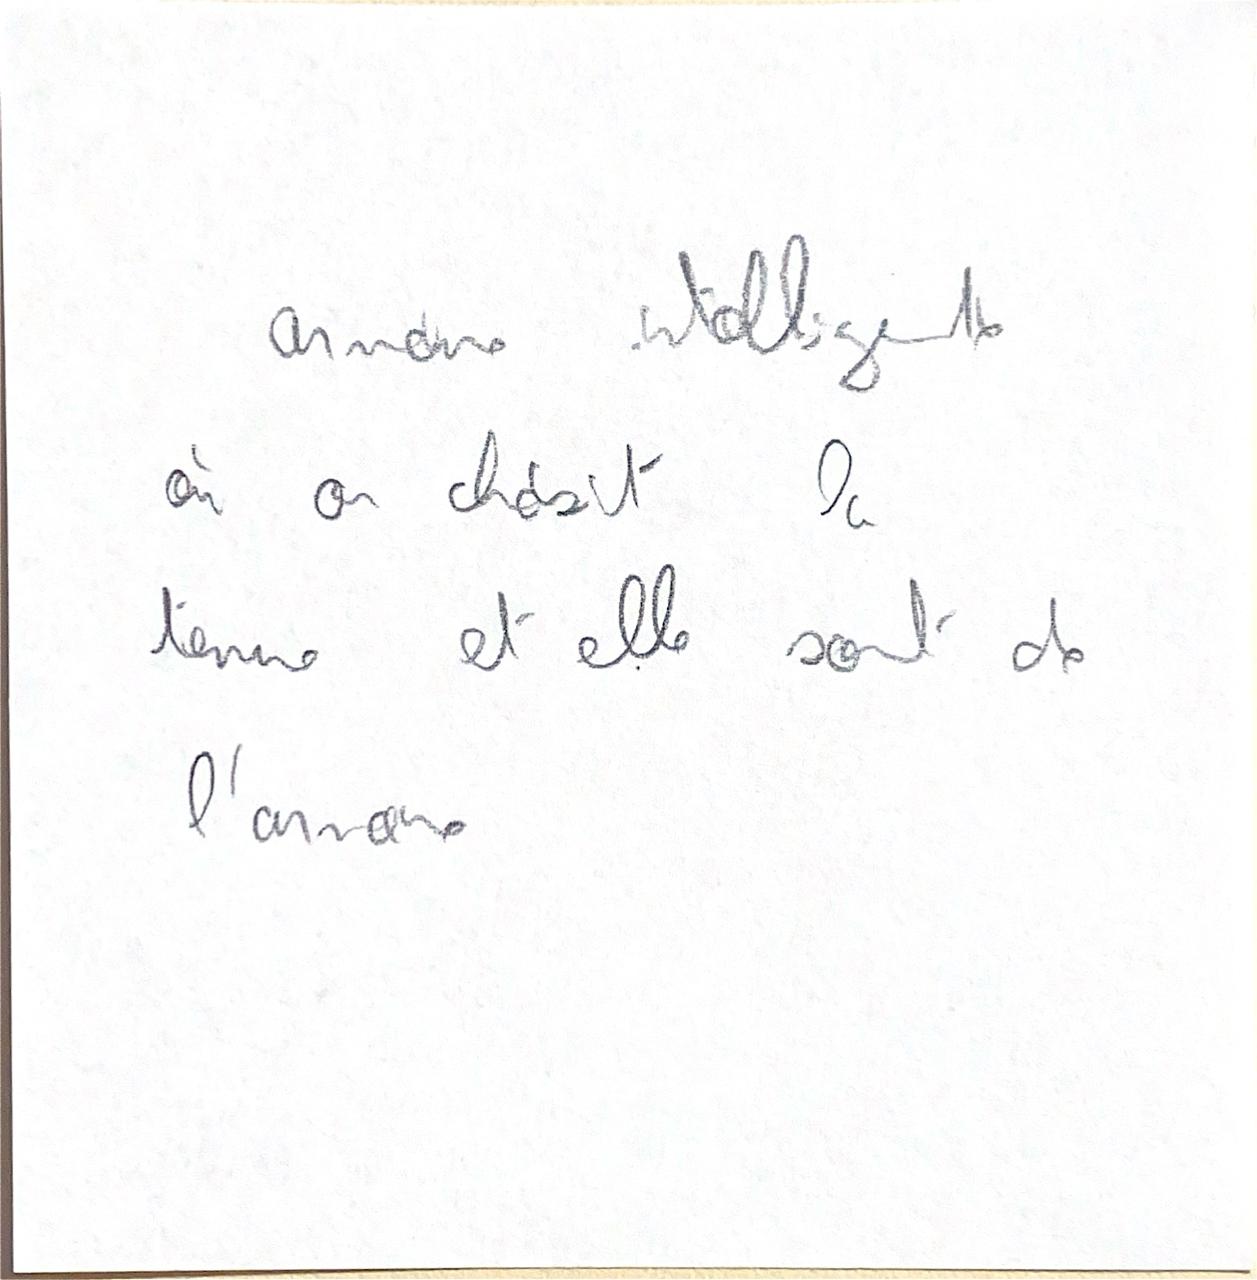 armoire intelligente
où on choisit la
tenue et elle sort de
l'armoire